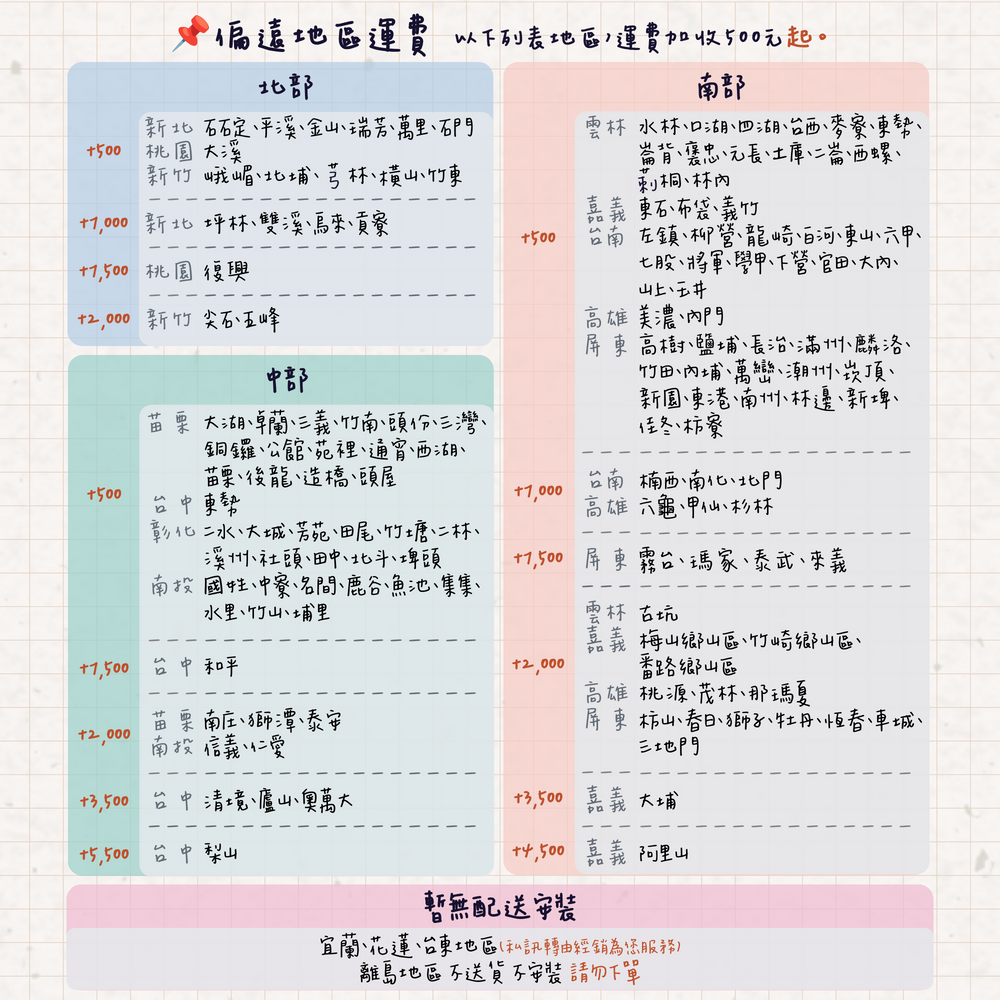 偏遠地區運費 以下列表地區,運費加收500元起。
北部
+500
新北 石石定、平溪、金山、瑞芳、萬里、石門
桃園 大溪
新竹 峨嵋、北埔、芎林、橫山、竹東
+1,000 新北 坪林、雙溪、烏來、貢寮
+1,500 桃園 復興
+2,000 新竹 尖石、五峰
中部
+500
苗栗 大湖、卓蘭、三義、竹南、頭份、三灣、
銅鑼、公館、苑裡、通宵、西湖、
苗栗、後龍、造橋、頭屋
台中 東勢
彰化 二水、大城、芳苑、田尾、竹塘、二林、
溪州、社頭、田中、北斗、埤頭
南投 國姓、中寮、名間、鹿谷、魚池、集集、
水里、竹山、埔里
+1,500 台中 和平
+2,000
苗栗 南庄、獅潭、泰安
南投 信義、仁愛
+3,500 台中 清境、廬山、奧萬大
+5,500 台中 梨山
南部
+500
雲林 水林、口湖、四湖、台西、麥寮、東勢、
崙背、褒忠、元長、土庫、二崙、西螺、
莿桐、林內
嘉義 東石、布袋、義竹
台南 左鎮、柳營、龍崎、白河、東山、六甲、
七股、將軍、學甲、下營、官田、大內、
山上、玉井
高雄 美濃、內門
屏東 高樹、鹽埔、長治、滿州、麟洛、
竹田、內埔、萬巒、潮州、崁頂、
新園、東港、南州、林邊、新埤、
佳冬、枋寮
+1,000
台南 楠西、南化、北門
高雄 六龜、甲仙、杉林
+1,500 屏東 霧台、瑪家、泰武、來義
+2,000
雲林 古坑
嘉義 梅山鄉山區、竹崎鄉山區、
番路鄉山區
高雄 桃源、茂林、那瑪夏
屏東 枋山、春日、獅子、牡丹、恆春、車城、
三地門
+3,500 嘉義 大埔
+4,500 嘉義 阿里山
暫無配送安裝
宜蘭、花蓮、台東地區(私訊轉由經銷為您服務)
離島地區 不送貨 不安裝 請勿下單